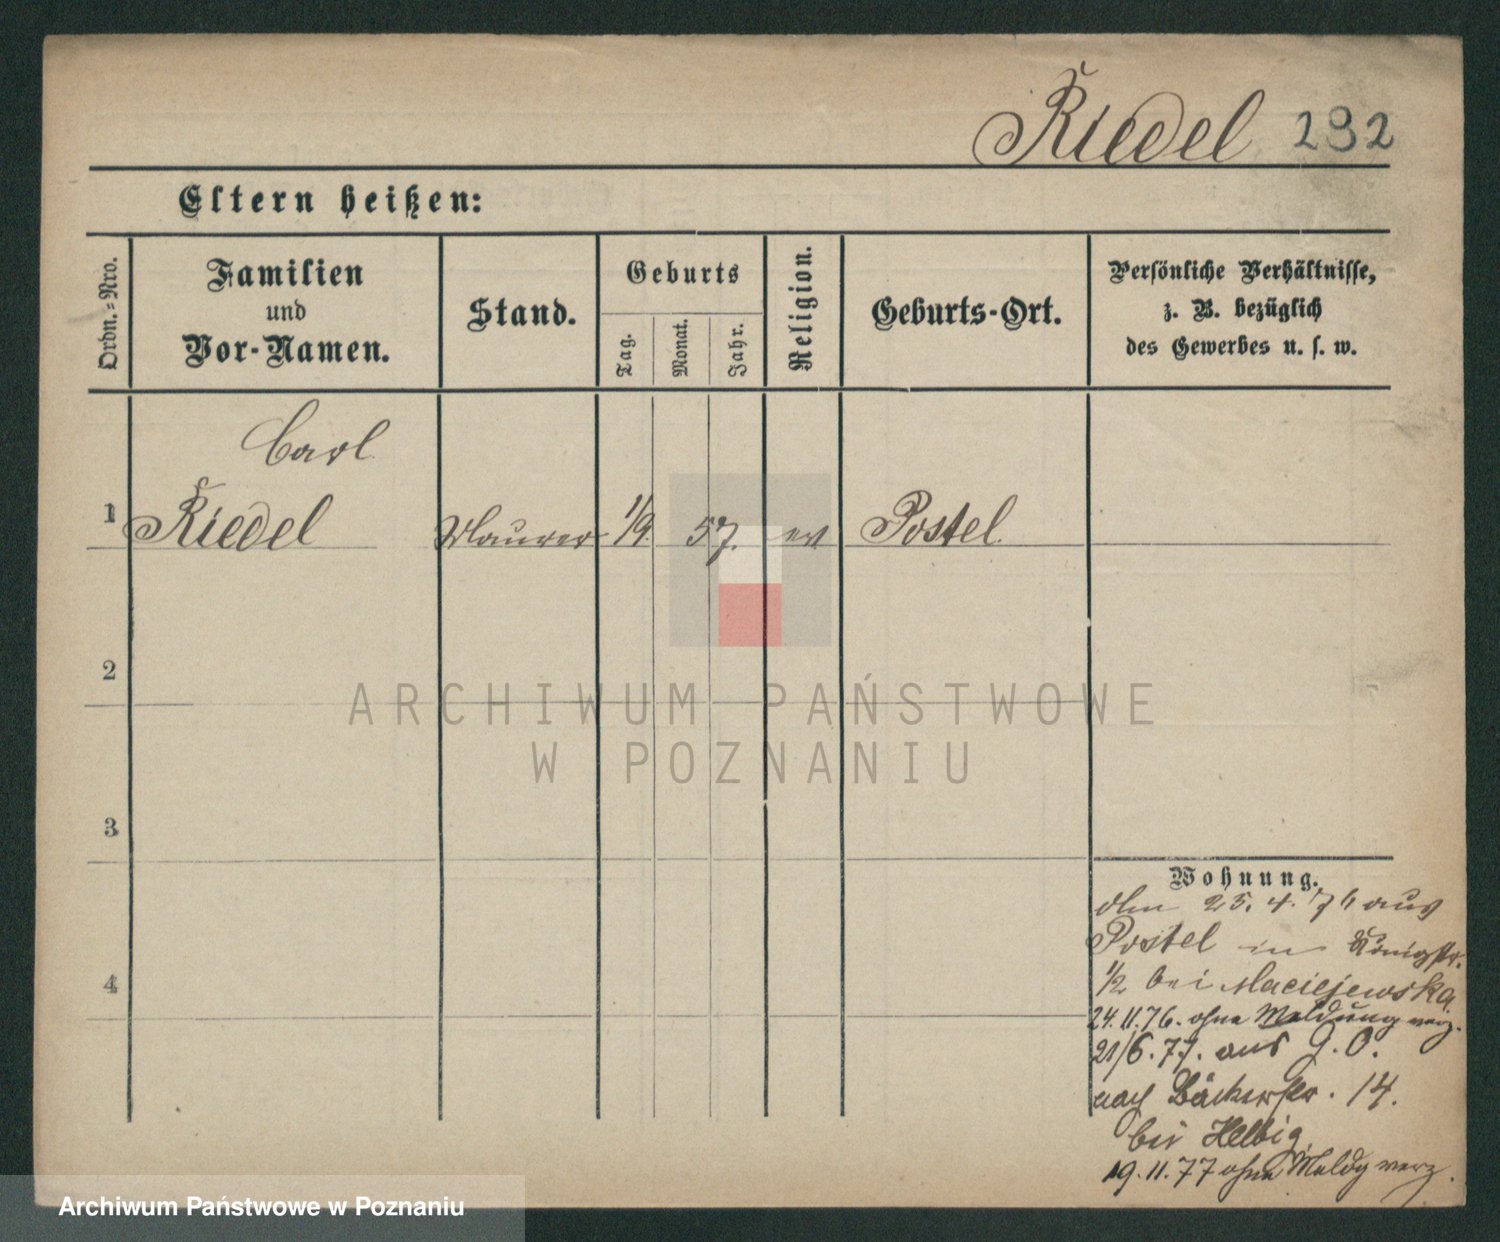 Riedel 292
Eltern heißen:
Ordn.-Nro.
Familien
und
Vor-Namen.
Stand.
Geburts
Tag.
Monat.
Jahr.
Religion.
Geburts-Ort.
Persönliche Verhältnisse,
z. B. bezüglich
des Gewerbes u. s. w.
Carl
1 Riedel Maurer 1/9. 57. ev. Postel.
2
3
4
ARCHIWUM PAŃSTWOWE
W POZNANIU
Wohnung.
den 25. 4. 76 aus
Postel in Königstr.
1/2 bei Maciejewska
24.11.76. ohne Meldung verz.
21/6.77. aus G.O.
nach Bäckerstr. 14.
bei Helbig.
19.11.77 ohne Meldg verz.
Archiwum Państwowe w Poznaniu